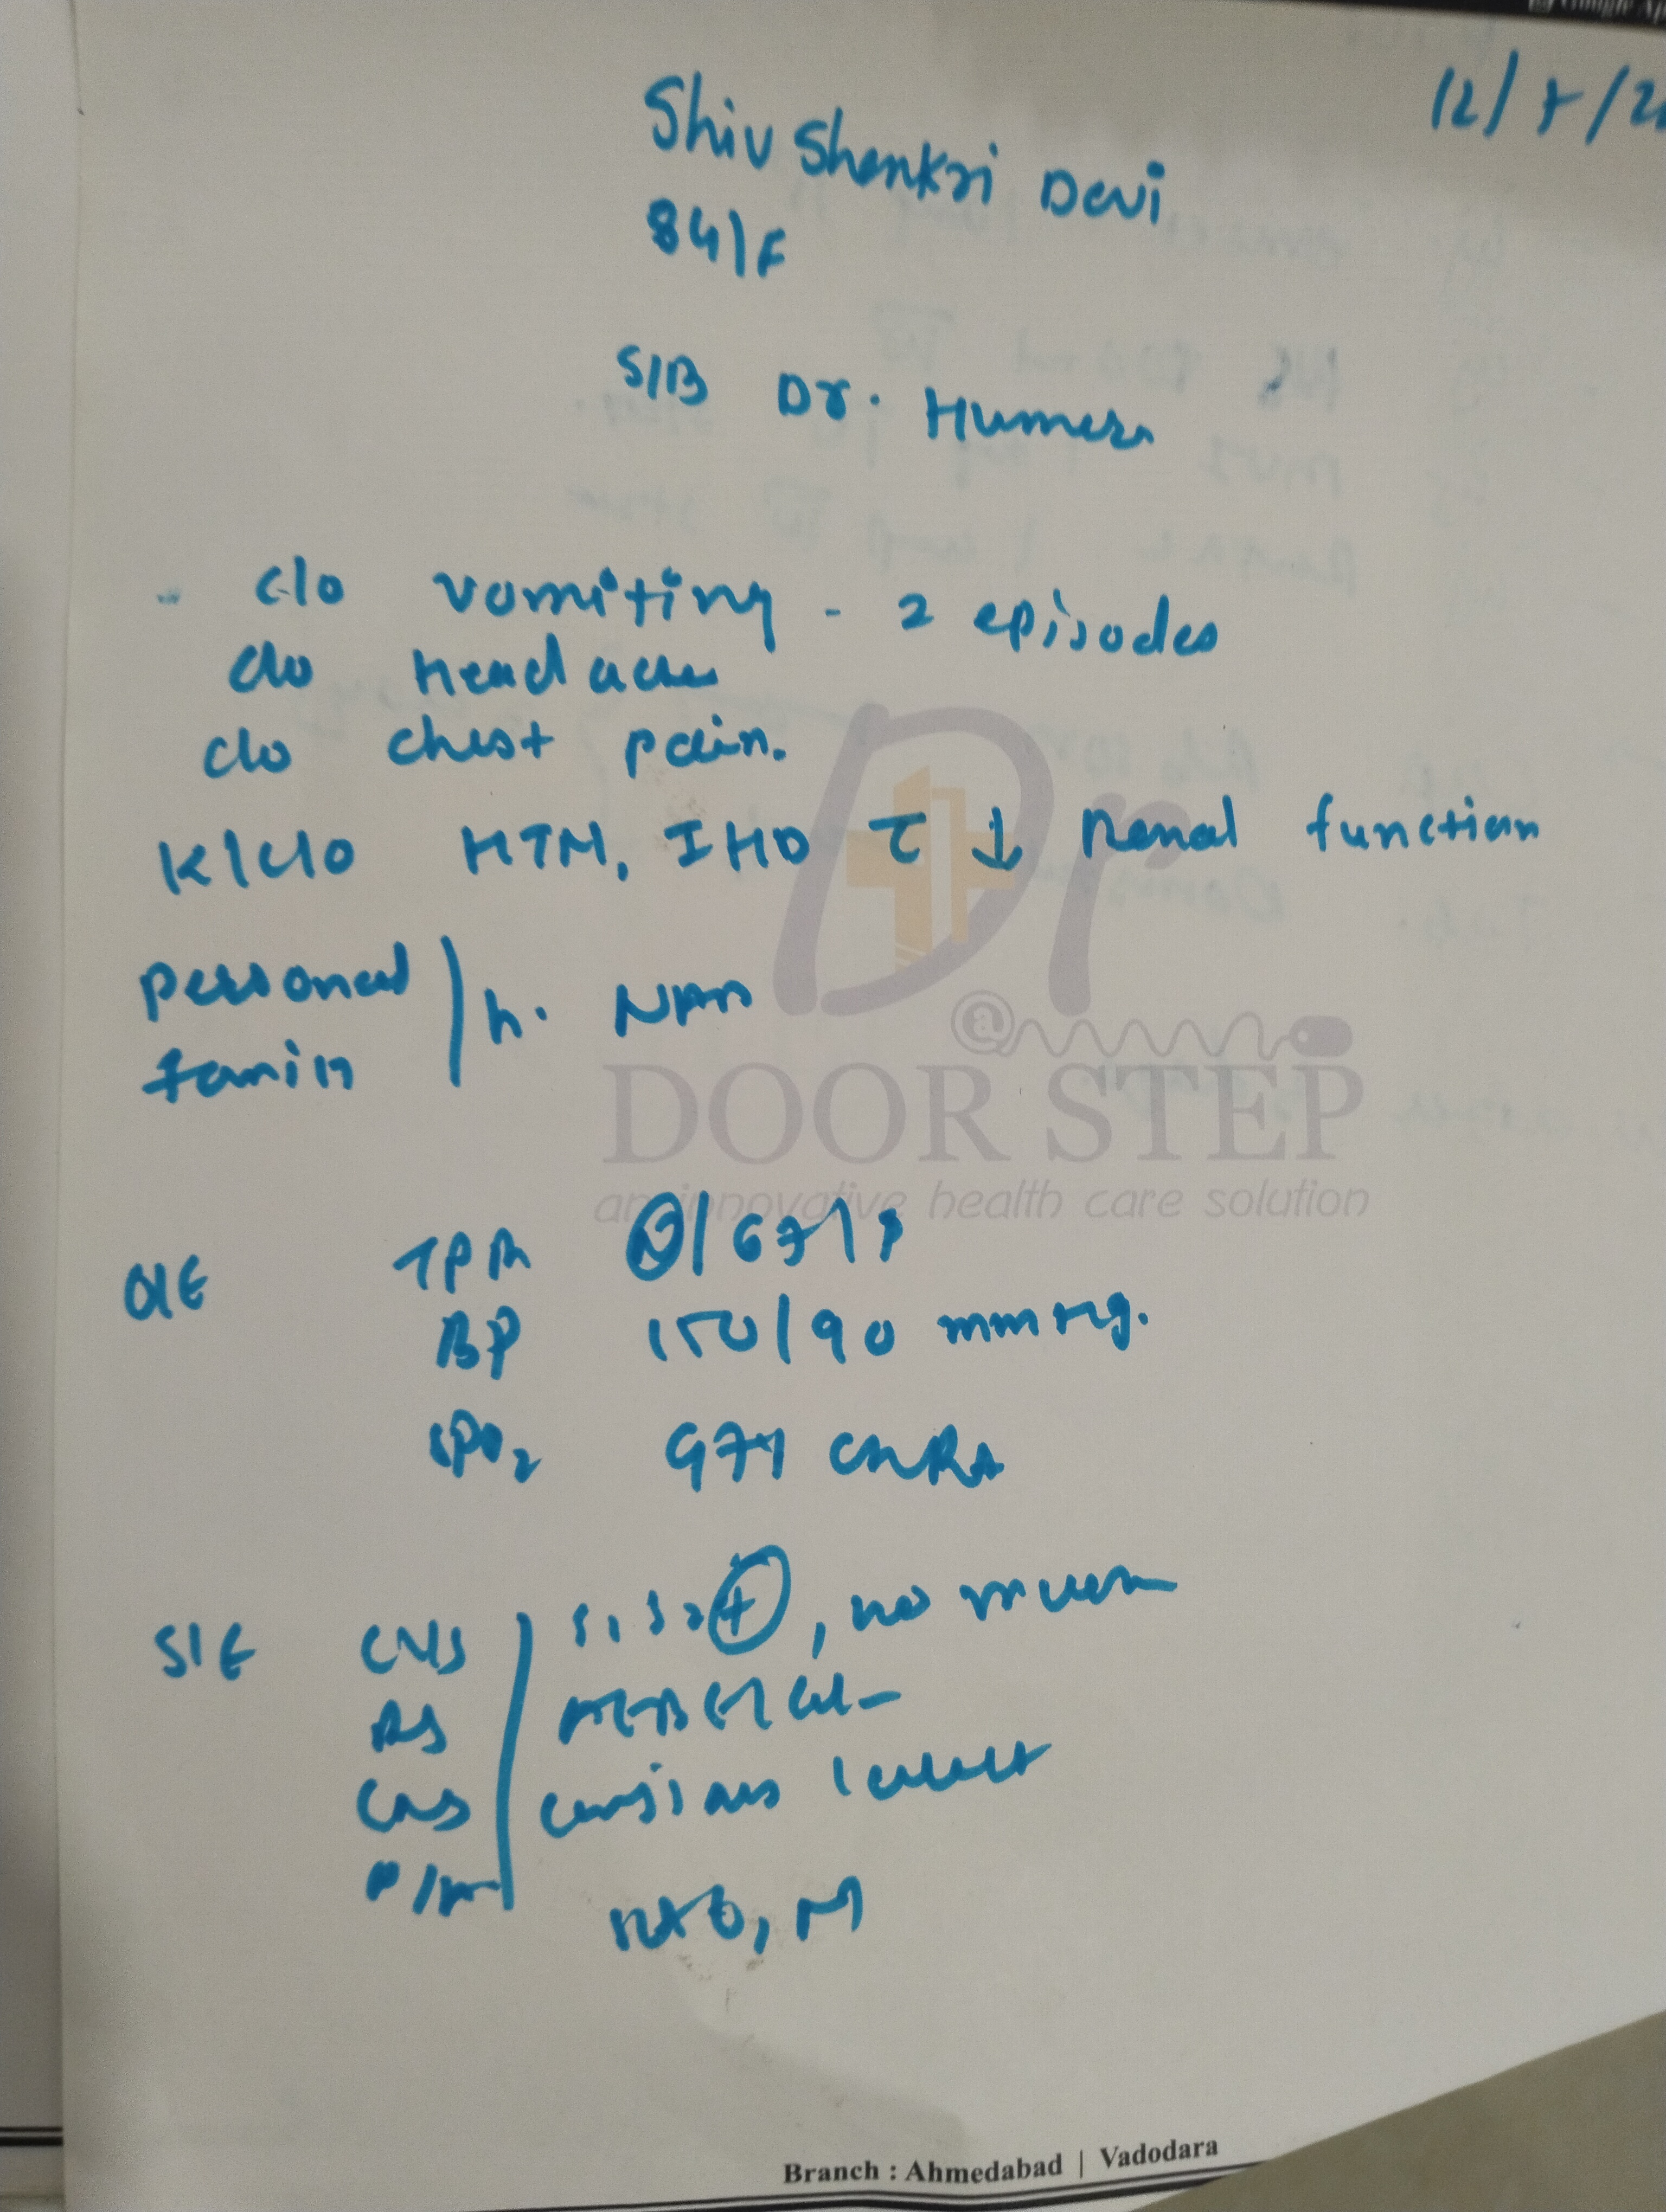 12/7/2
Shiv Shankri Devi
84/F
S/B Dr. Humera
c/o vomiting - 2 episodes
c/o Headache
c/o chest pain.
K/c/o HTN, IHD c ↓ Renal function
personal
family
h. NAD
Dr
@
DOOR STEP
an innovative health care solution
O/E TPR N/67/P
BP 150/90 mmHg.
SPO2 97% ON RA
S/E CVS S1S2 +, no murmur
RS AEBE clear
CNS conscious
P/A
Branch : Ahmedabad | Vadodara